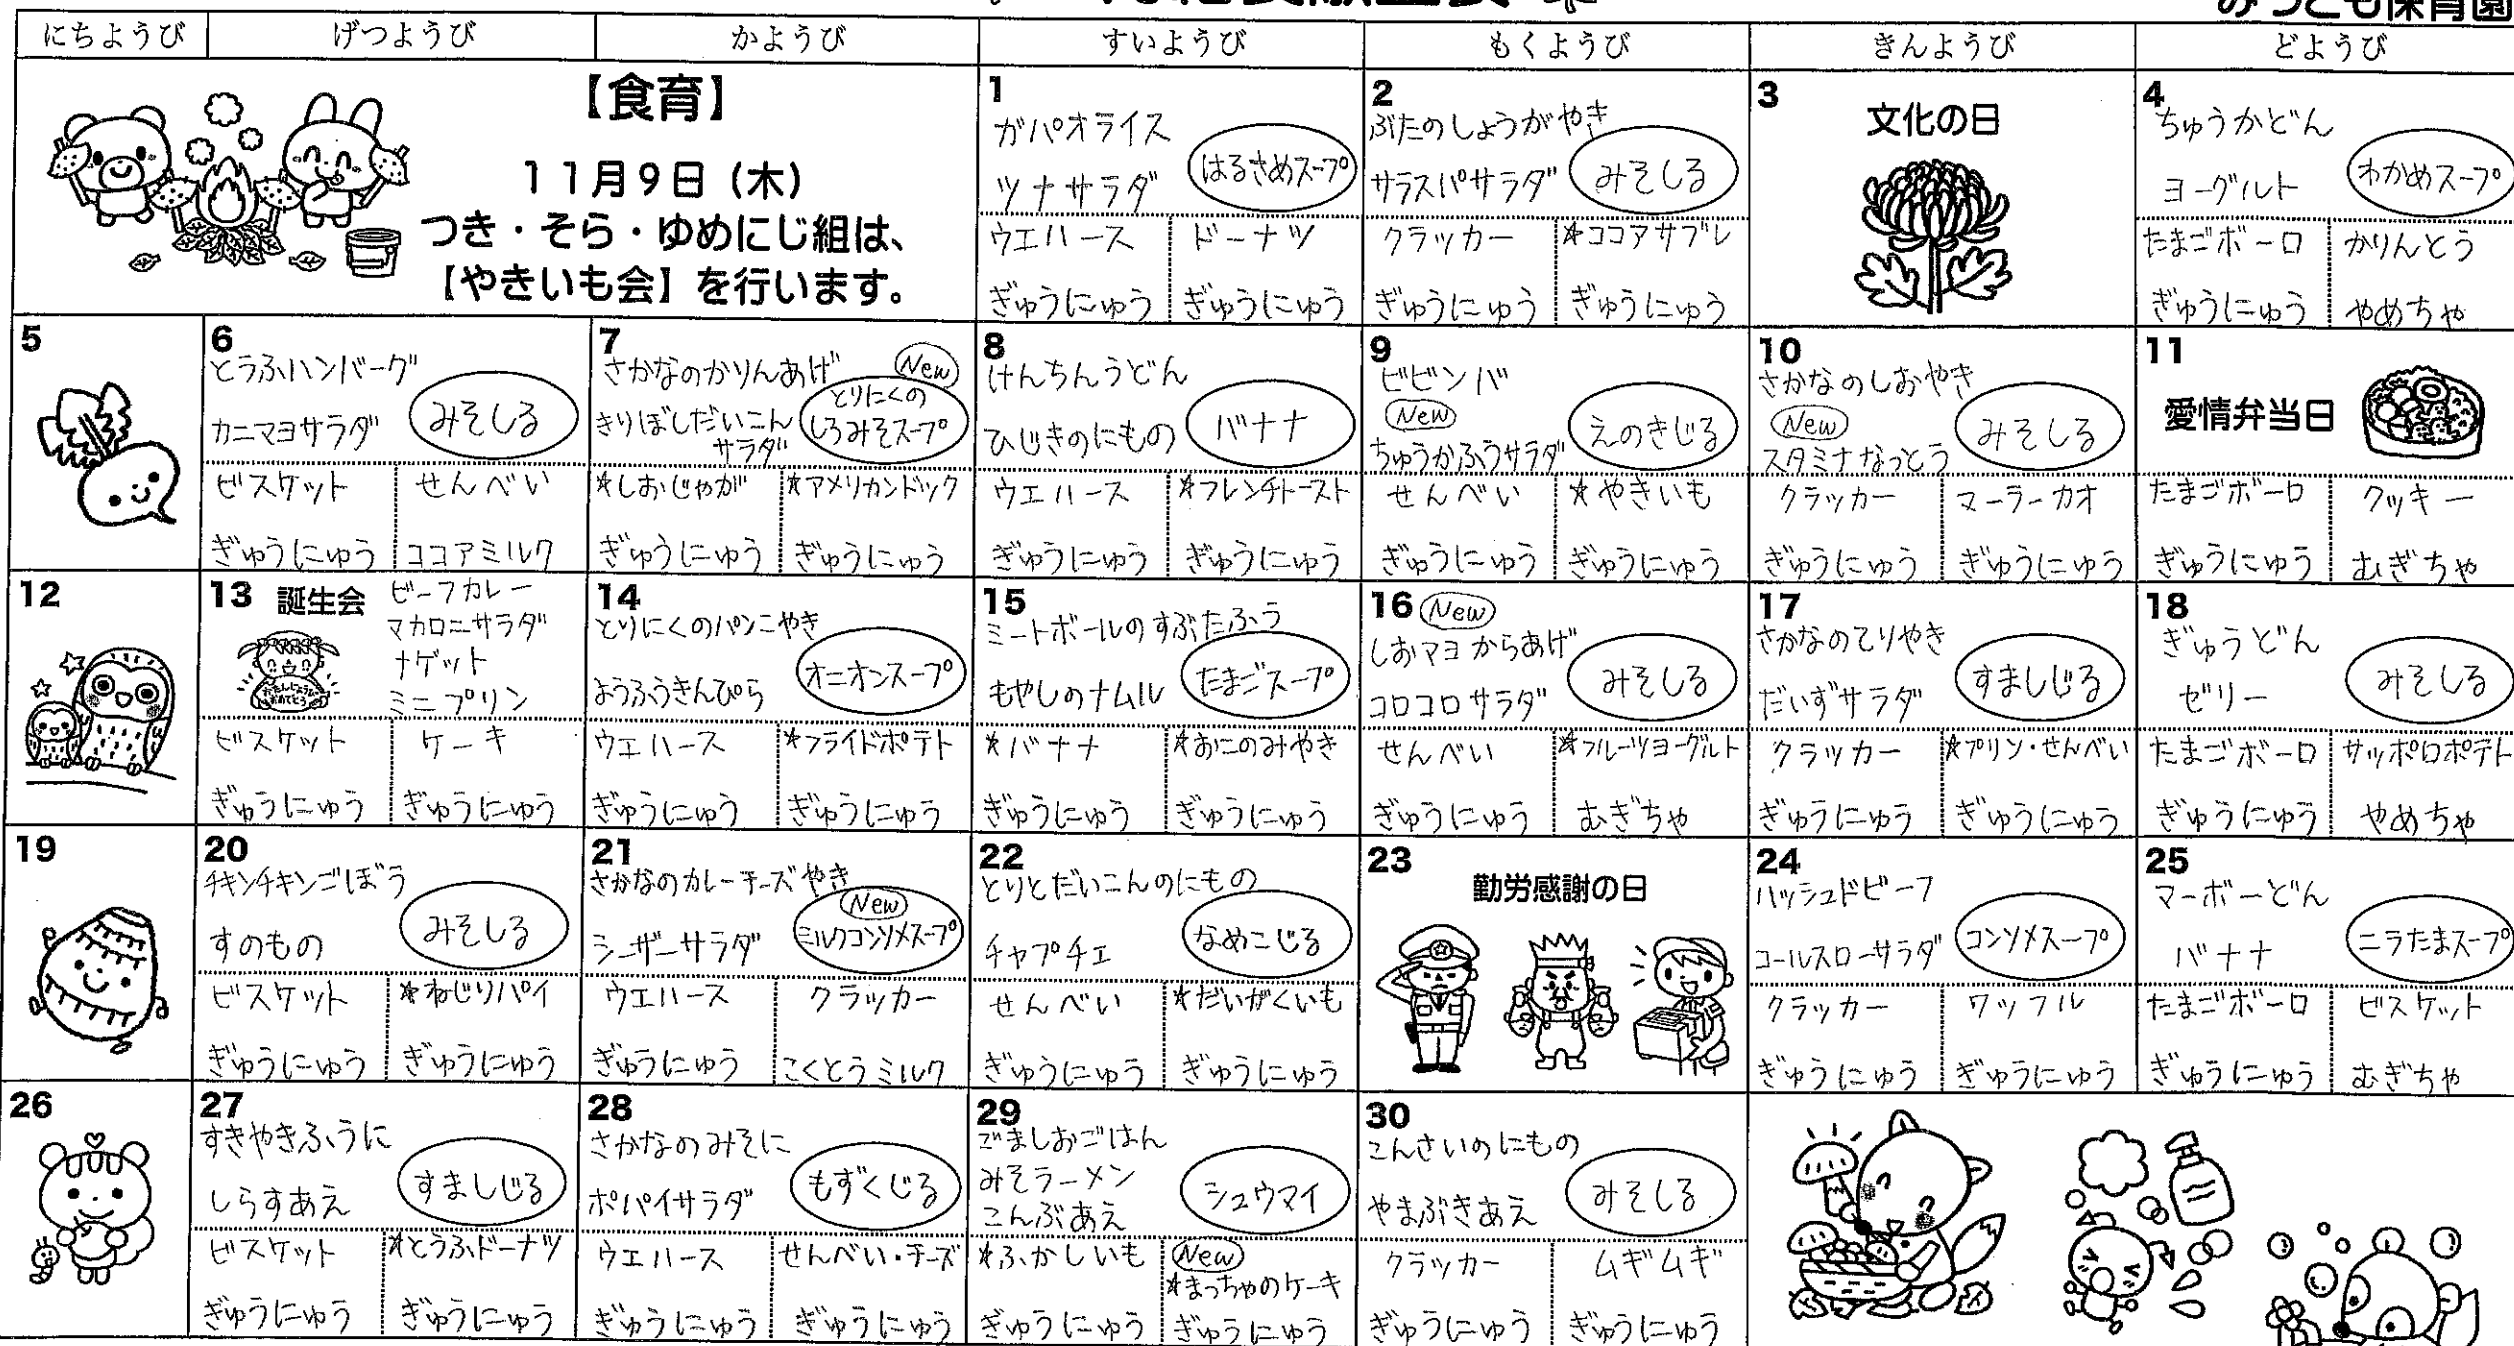 にちようび げつようび かようび すいようび もくようび きんようび どようび
【食育】
11月9日（木）
つき・そら・ゆめにじ組は、
【やきいも会】を行います。
1
ガパオライス
ツナサラダ
はるさめスープ
ウエハース ドーナツ
ぎゅうにゅう ぎゅうにゅう
2
ぶたのしょうがやき
サラスパサラダ
みそしる
クラッカー ☆ココアサブレ
ぎゅうにゅう ぎゅうにゅう
3
文化の日
4
ちゅうかどん
ヨーグルト
わかめスープ
たまごボーロ かりんとう
ぎゅうにゅう やめちゃ
5
6
とうふハンバーグ
カニマヨサラダ
みそしる
ビスケット せんべい
ぎゅうにゅう ココアミルク
7
さかなのかりんあげ
きりぼしだいこん
サラダ
New
とりにくの
しろみそスープ
☆しおじゃが ☆アメリカンドック
ぎゅうにゅう ぎゅうにゅう
8
けんちんうどん
ひじきのにもの
バナナ
ウエハース ☆フレンチトースト
ぎゅうにゅう ぎゅうにゅう
9
ビビンバ
New
ちゅうかふうサラダ
えのきじる
せんべい ☆やきいも
ぎゅうにゅう ぎゅうにゅう
10
さかなのしおやき
New
スタミナなっとう
みそしる
クラッカー マーラーカオ
ぎゅうにゅう ぎゅうにゅう
11
愛情弁当日
たまごボーロ クッキー
ぎゅうにゅう むぎちゃ
12
13 誕生会
おたんじょうび
おめでとう
ビーフカレー
マカロニサラダ
ナゲット
ミニプリン
ビスケット ケーキ
ぎゅうにゅう ぎゅうにゅう
14
とりにくのパンこやき
ようふうきんぴら
オニオンスープ
ウエハース ☆フライドポテト
ぎゅうにゅう ぎゅうにゅう
15
ミートボールのすぶたふう
もやしのナムル
たまごスープ
☆バナナ ☆おこのみやき
ぎゅうにゅう ぎゅうにゅう
16 New
しおマヨからあげ
コロコロサラダ
みそしる
せんべい ☆フルーツヨーグルト
ぎゅうにゅう むぎちゃ
17
さかなのてりやき
だいずサラダ
すましじる
クラッカー ☆プリン・せんべい
ぎゅうにゅう ぎゅうにゅう
18
ぎゅうどん
ゼリー
みそしる
たまごボーロ サッポロポテト
ぎゅうにゅう やめちゃ
19
20
チキンチキンごぼう
すのもの
みそしる
ビスケット ☆ねじりパイ
ぎゅうにゅう ぎゅうにゅう
21
さかなのカレーチーズやき
シーザーサラダ
New
ミルクコンソメスープ
ウエハース クラッカー
ぎゅうにゅう こくとうミルク
22
とりとだいこんのにもの
チャプチェ
なめこじる
せんべい ☆だいがくいも
ぎゅうにゅう ぎゅうにゅう
23
勤労感謝の日
24
ハッシュドビーフ
コールスローサラダ
コンソメスープ
クラッカー ワッフル
ぎゅうにゅう ぎゅうにゅう
25
マーボーどん
バナナ
ニラたまスープ
たまごボーロ ビスケット
ぎゅうにゅう むぎちゃ
26
27
すきやきふうに
しらすあえ
すましじる
ビスケット ☆とうふドーナツ
ぎゅうにゅう ぎゅうにゅう
28
さかなのみそに
ポパイサラダ
もずくじる
ウエハース せんべい・チーズ
ぎゅうにゅう ぎゅうにゅう
29
ごましおごはん
みそラーメン
こんぶあえ
シュウマイ
☆ふかしいも New
☆まっちゃのケーキ
ぎゅうにゅう ぎゅうにゅう
30
こんさいのにもの
やまぶきあえ
みそしる
クラッカー ムギムギ
ぎゅうにゅう ぎゅうにゅう